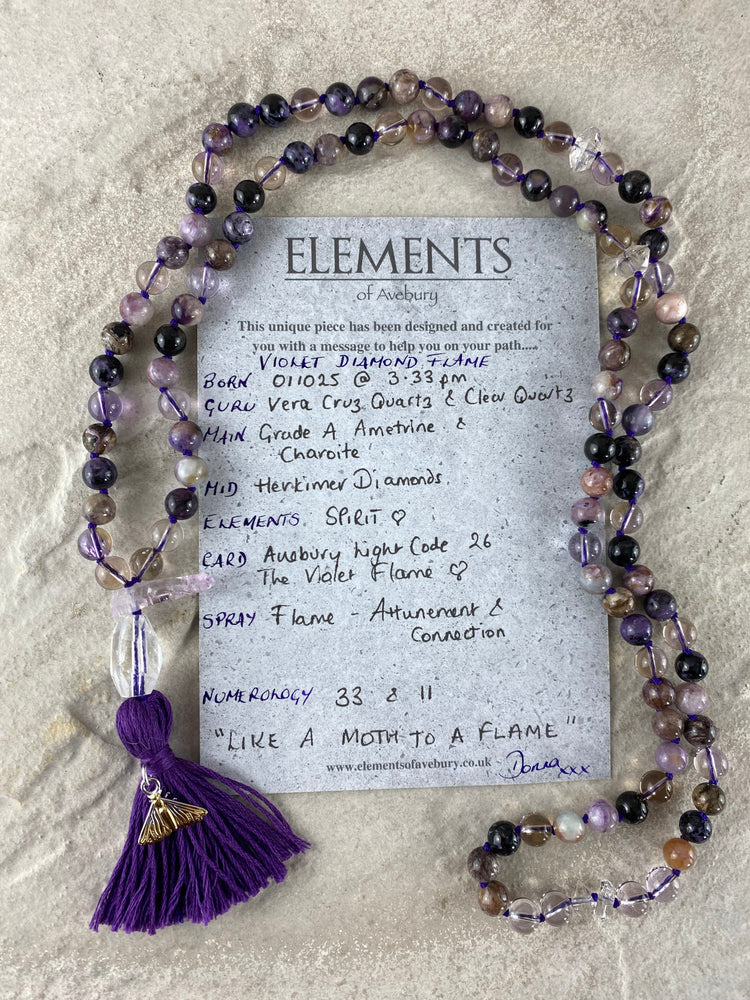 ELEMENTS
of Avebury
This unique piece has been designed and created for
you with a message to help you on your path....
VIOLET DIAMOND FLAME
BORN 011025 @ 3.33pm
GURU Vera Cruz Quartz & Clear Quartz
MAIN Grade A Ametrine &
Charoite
MID Herkimer Diamonds.
ELEMENTS SPIRIT ♡
CARD Avebury Light Code 26
The Violet Flame ♡
SPRAY Flame - Attunement &
Connection
NUMEROLOGY 33 & 11
"LIKE A MOTH TO A FLAME"
www.elementsofavebury.co.uk - Donna xxx